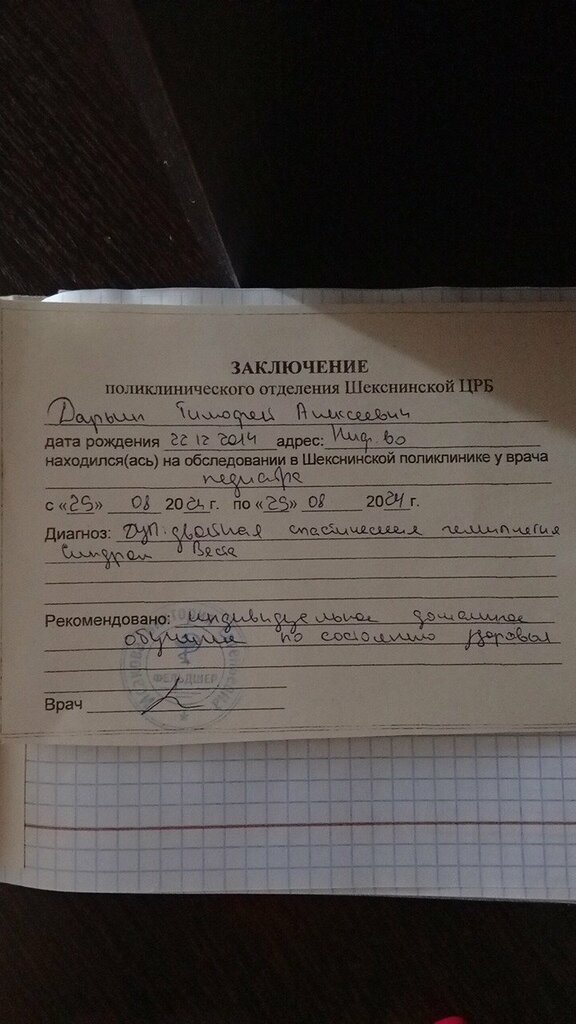 ЗАКЛЮЧЕНИЕ
поликлинического отделения Шекснинской ЦРБ
Тимофей Алексеевич
дата рождения 22 12 2014 адрес:
находился(ась) на обследовании в Шекснинской поликлинике у врача
педиатра
с «29» 08 2024 г. по «29» 08 2024 г.
Диагноз: двойная спастическая гемиплегия
Синдром Веста
Рекомендовано: индивидуальное домашнее
обучение по состоянию здоровья
ФЕЛЬДШЕР
Врач